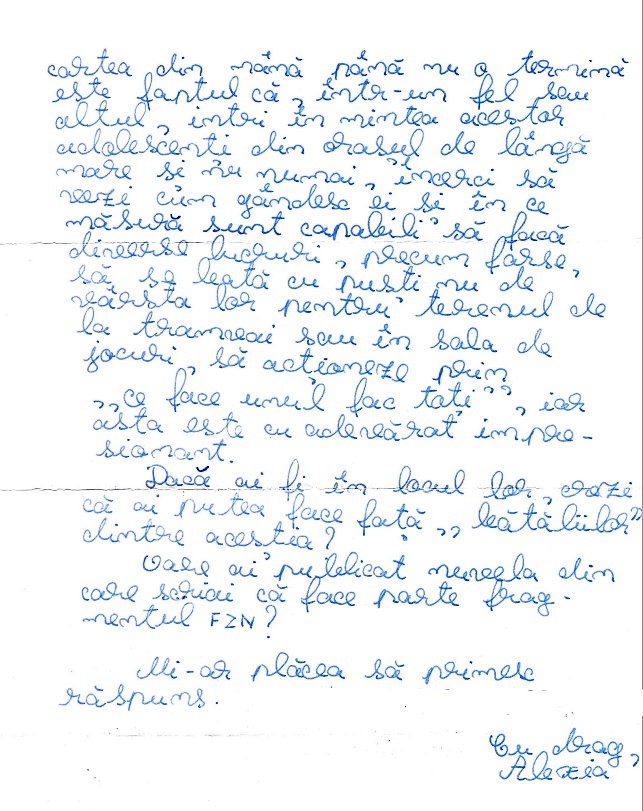 cartea din mână până nu o termină
este faptul că, într-un fel sau
altul, intri în mintea acestor
adolescenți din orașul de lângă
mare și nu numai, încerci să
vezi cum gândesc ei și în ce
măsură sunt capabili să facă
diverse lucruri, precum farse,
să se bată cu puști nu de
vârsta lor pentru terenul de
la tramvai sau în sala de
jocuri, să acționeze prin
„ce face unul fac toți”, iar
asta este cu adevărat impre-
sionant.
Dacă ai fi în locul lor, crezi
că ai putea face față „bătăliilor”
dintre aceștia?
Oare ai publicat nuvela din
care scriai că face parte frag-
mentul FZN?
Mi-ar plăcea să primesc
răspuns.
Cu drag,
Alexia